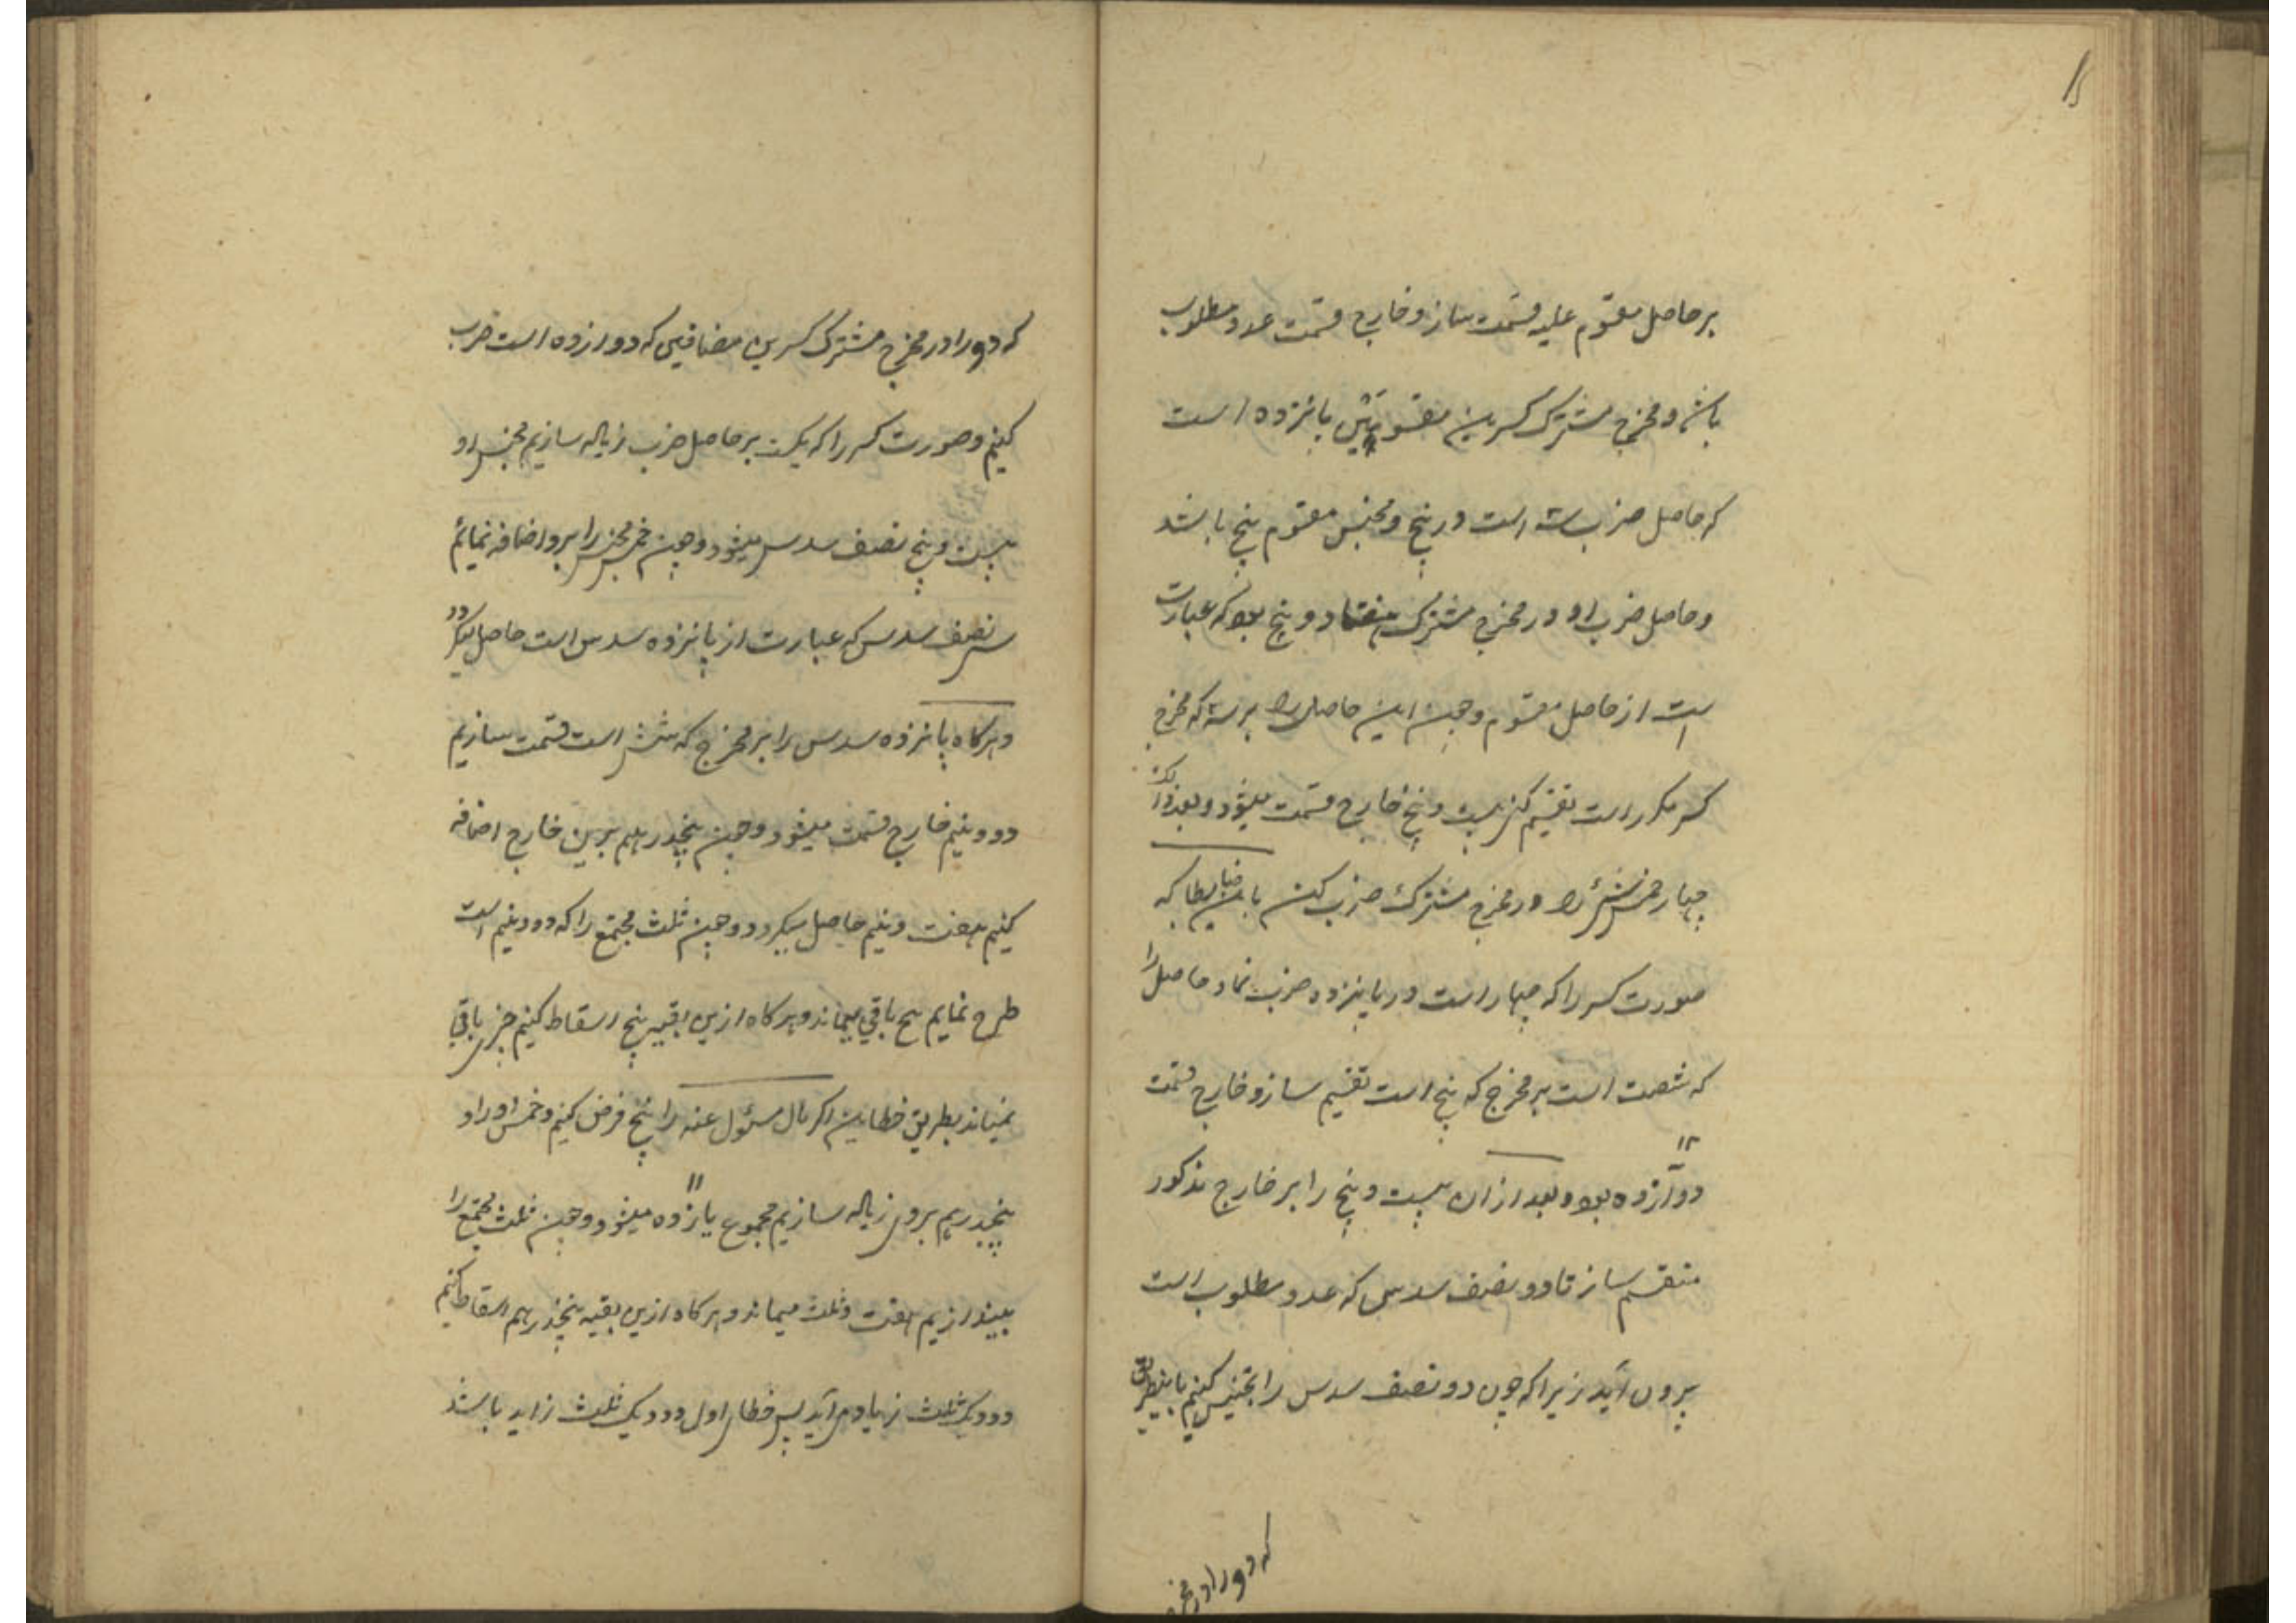 بر حاصل مقسوم علیه قسمت ساز و خارج قسمت عدد مطلوب
باشد و مخرج مشترک کسرین مقسومین پانزده است
که حاصل ضرب سه است در پنج و مجنس مقسوم پنج باشد
و حاصل ضرب او در مخرج مشترک هفتاد و پنج بود که عبارت
است از حاصل مقسوم و چون این حاصل را بر سه که مخرج
کسر مکرر است تقسیم کنی بیست و پنج خارج قسمت میشود و بعد از آن
چهار خمس شئ را در مخرج مشترک ضرب کن باین ضابطه که
صورت کسر را که چهار است در پانزده ضرب نما و حاصل را
که شصت است بر مخرج که پنج است تقسیم ساز و خارج قسمت
۱۲
دوازده بود و بعد از آن بیست و پنج را بر خارج مذکور
منقسم ساز تا دو و نصف سدس که عدد مطلوب است
بیرون آید زیرا که چون دو و نصف سدس را تجنیس کنیم باینطریق
که دو را در مخرج
که دو را در مخرج مشترک کسرین مضافین که دوازده است ضرب
کنیم و صورت کسر را که یک است بر حاصل ضرب زیاله سازیم مجنس او
بیست و پنج نصف سدس میشود و چون خمس مجنس را برو اضافه نمائیم
سی نصف سدس که عبارت از پانزده سدس است حاصل میگردد
و هرگاه پانزده سدس را بر مخرج که شش است قسمت سازیم
دو و نیم خارج قسمت میشود و چون پنجدرهم برین خارج اضافه
کنیم هفت و نیم حاصل میگردد و چون ثلث مجتمع را که دو و نیم است
طرح نمایم پنج باقی میماند و هرگاه ازین بقیه پنج اسقاط کنیم چیزی باقی
نمیماند بطریق خطاین اگر مال مسئول عنه را پنج فرض کنیم و خمس او را و
۱۱
پنجدرهم بروی زیاله سازیم مجموع یازده میشود و چون ثلث مجتمع را
بیندازیم هفت و ثلث میماند و هرگاه ازین بقیه پنجدرهم اسقاط کنیم
دو و یک ثلث زیاد می آید پس خطای اول دو و یک ثلث زاید باشد